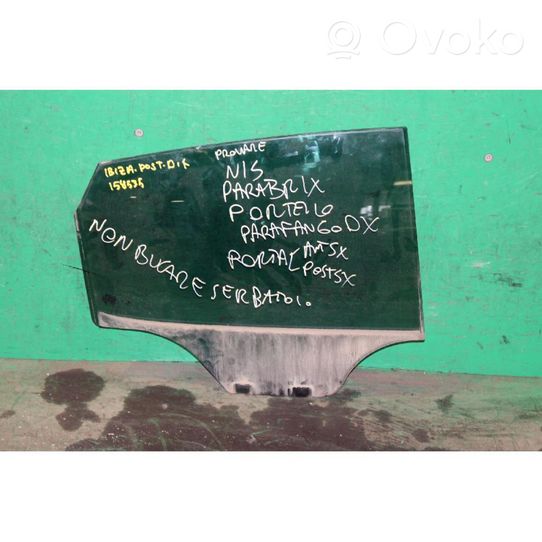 Ovoko
IBIZA. POST. DX
PROVARE
NIS
PARABRIX
PORTELLO
PARAFANGO DX
PORTA ANT SX
POST SX
NON BUCARE SERBATOI.